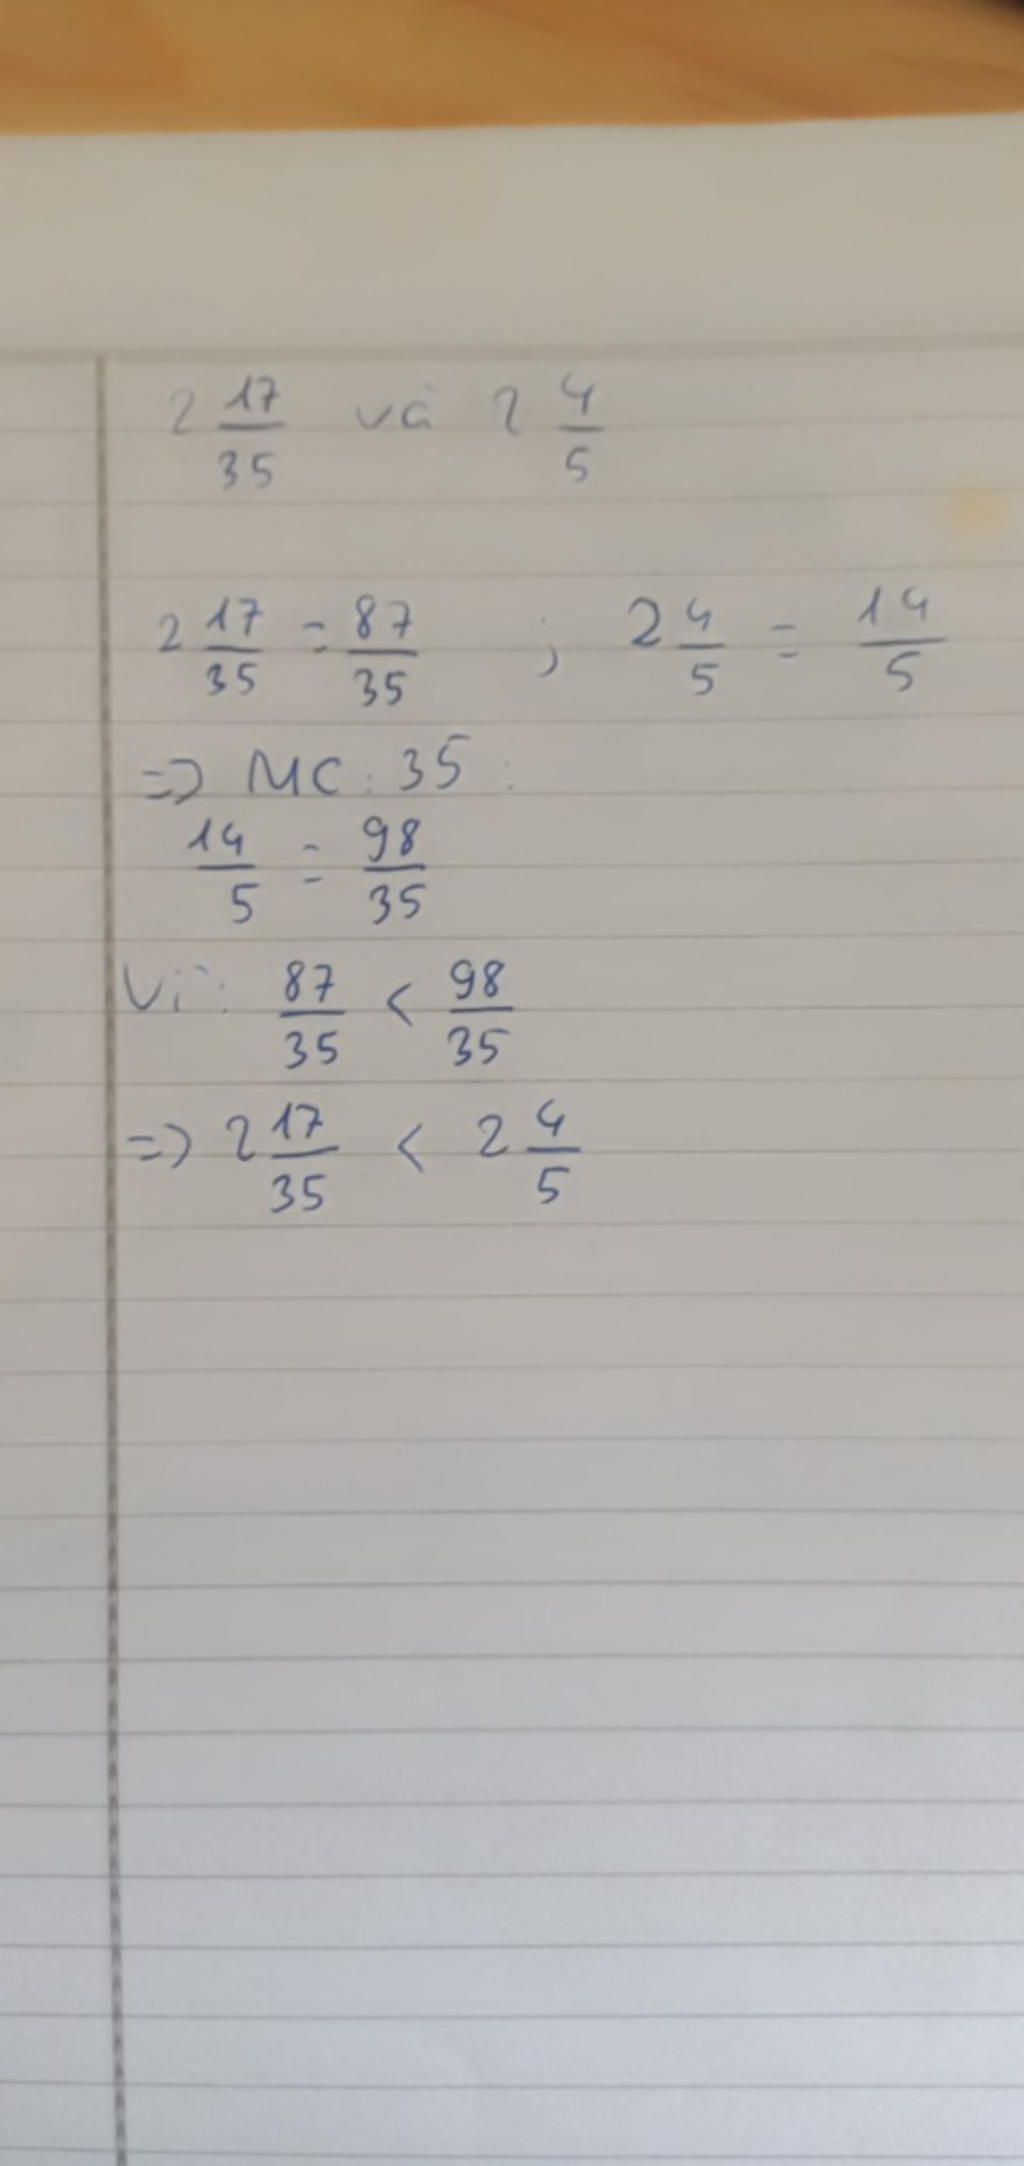 2 17/35 và 2 4/5
2 17/35 = 87/35 ; 2 4/5 = 14/5
=> MC : 35 :
14/5 = 98/35
Vì : 87/35 < 98/35
=> 2 17/35 < 2 4/5